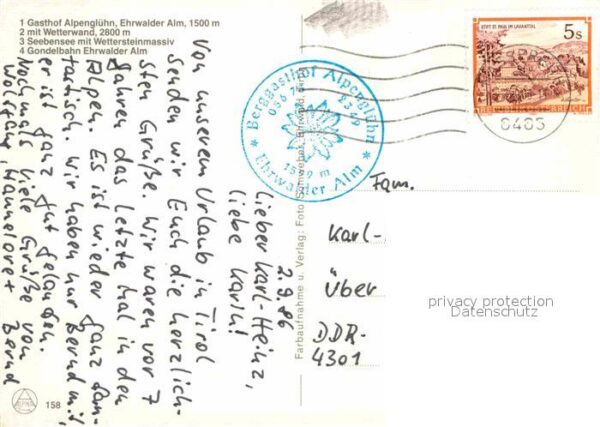 1 Gasthof Alpenglühn, Ehrwalder Alm, 1500 m
2 mit Wetterwand, 2800 m
3 Seebensee mit Wettersteinmassiv
4 Gondelbahn Ehrwalder Alm
2.9.86
Lieber Karl-Heinz,
liebe Karin!
Von unserem Urlaub in Tirol
senden wir Euch die herzlich-
sten Grüße. Wir waren vor 7
Jahren das letzte Mal in den
Alpen. Es ist wieder ganz fan-
tastisch. Wir haben nur Bernd mit,
er ist ganz gut gelaufen.
Nochmals viele Grüße von
Wolfgang, Hannelore +
Bernd
Berggasthof Alpenglühn
1500 m
* Ehrwalder Alm *
Farbaufnahme u. Verlag: Foto Somweber, Ehrwald, Tirol
STIFT ST. PAUL IM LAVANTTAL
5 S
REPUBLIK ÖSTERREICH
Fam.
Karl-
Über
DDR-
4301
privacy protection
Datenschutz
158